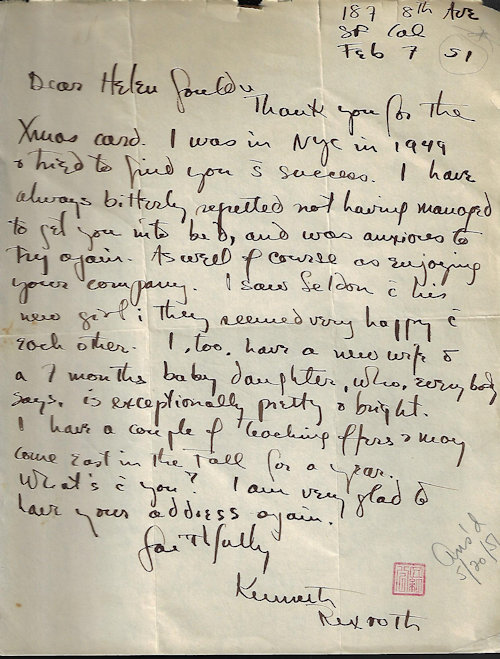 187 8th Ave
SF Cal
Feb 7 51
Dear Helen
Thank you for the
Xmas card. I was in NYC in 1949
& tried to find you s̄ success. I have
always bitterly regretted not having managed
to get you into bed, and was anxious to
try again. As well of course as enjoying
your company. I saw Seldon c̄ his
new girl & they seemed very happy c̄
each other. I, too, have a new wife &
a 7 months baby daughter, who, everybody
says, is exceptionally pretty & bright.
I have a couple of teaching offers & may
come East in the Fall for a year.
What's c̄ you? I am very glad to
have your address again.
Faithfully
Kenneth
Rexroth
Ans'd
5/20/51